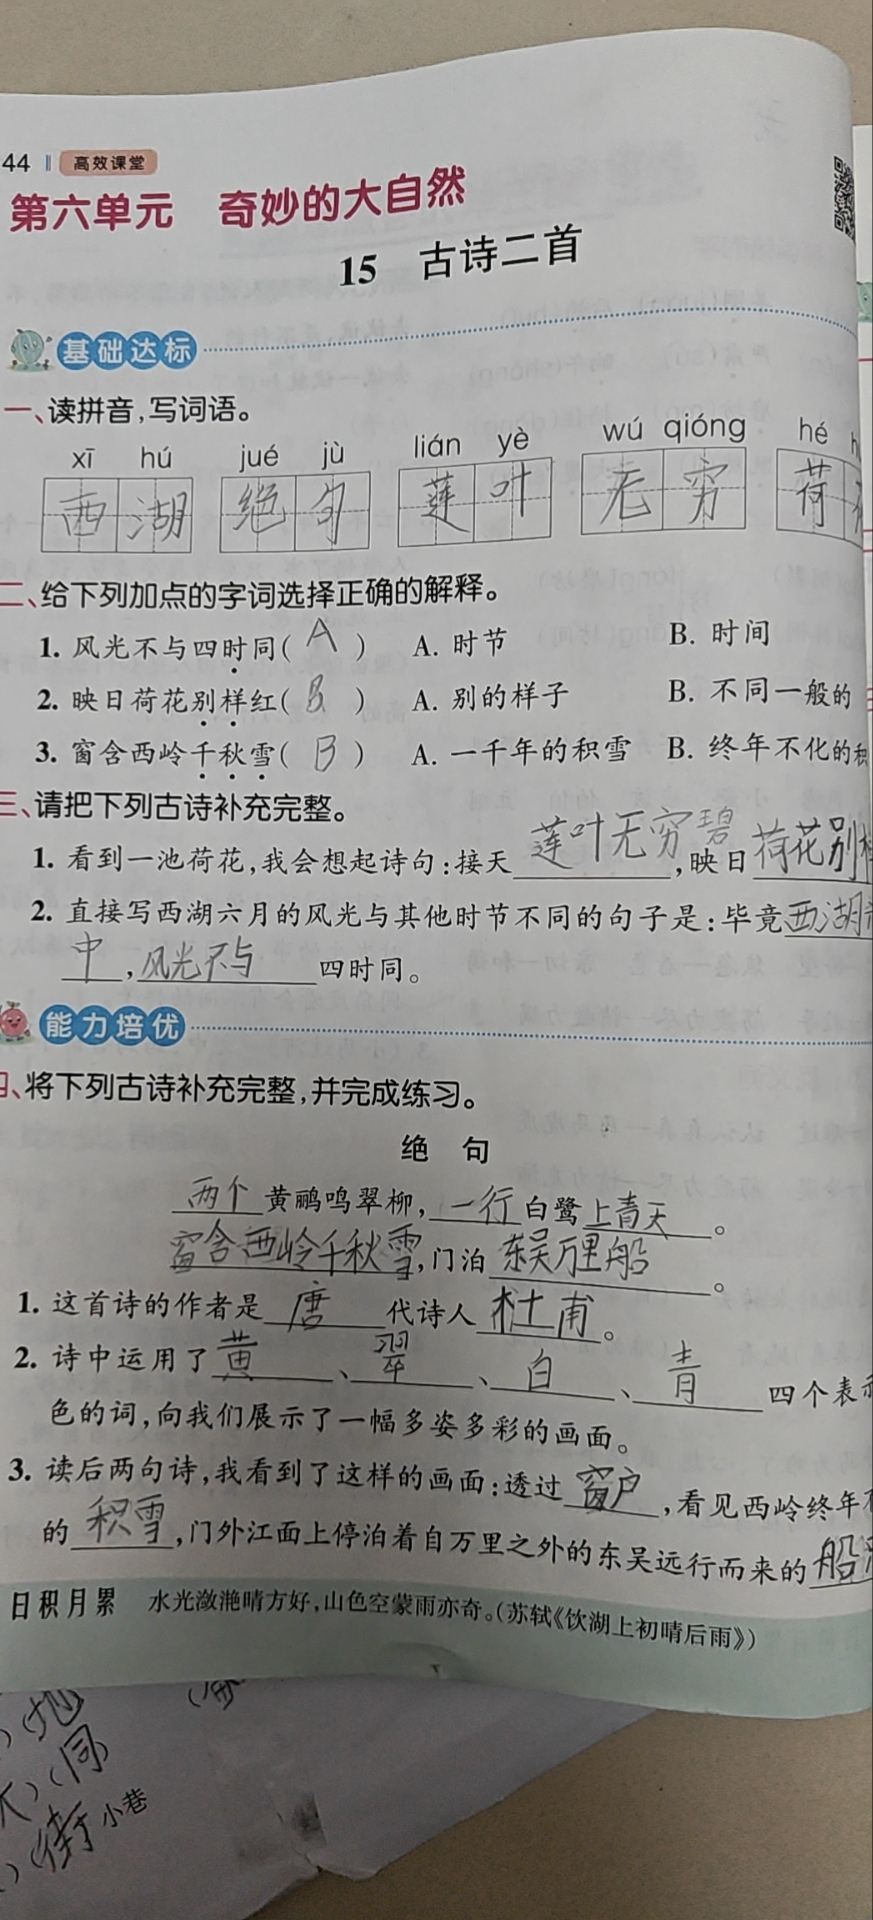 44 高效课堂
第六单元 奇妙的大自然
15 古诗二首
基础达标
一、读拼音,写词语。
xī hú jué jù lián yè wú qióng hé
西湖 绝句 莲叶 无穷 荷
二、给下列加点的字词选择正确的解释。
1. 风光不与四时同( A ) A. 时节 B. 时间
2. 映日荷花别样红( B ) A. 别的样子 B. 不同一般的
3. 窗含西岭千秋雪( B ) A. 一千年的积雪 B. 终年不化的积
三、请把下列古诗补充完整。
1. 看到一池荷花,我会想起诗句:接天莲叶无穷碧,映日荷花别样
2. 直接写西湖六月的风光与其他时节不同的句子是:毕竟西湖六
中,风光不与四时同。
能力培优
四、将下列古诗补充完整,并完成练习。
绝 句
两个黄鹂鸣翠柳,一行白鹭上青天。
窗含西岭千秋雪,门泊东吴万里船。
1. 这首诗的作者是唐代诗人杜甫。
2. 诗中运用了黄、翠、白、青四个表示
色的词,向我们展示了一幅多姿多彩的画面。
3. 读后两句诗,我看到了这样的画面:透过窗户,看见西岭终年不
的积雪,门外江面上停泊着自万里之外的东吴远行而来的船
日积月累 水光潋滟晴方好,山色空蒙雨亦奇。(苏轼《饮湖上初晴后雨》)
(同)
(街)小巷